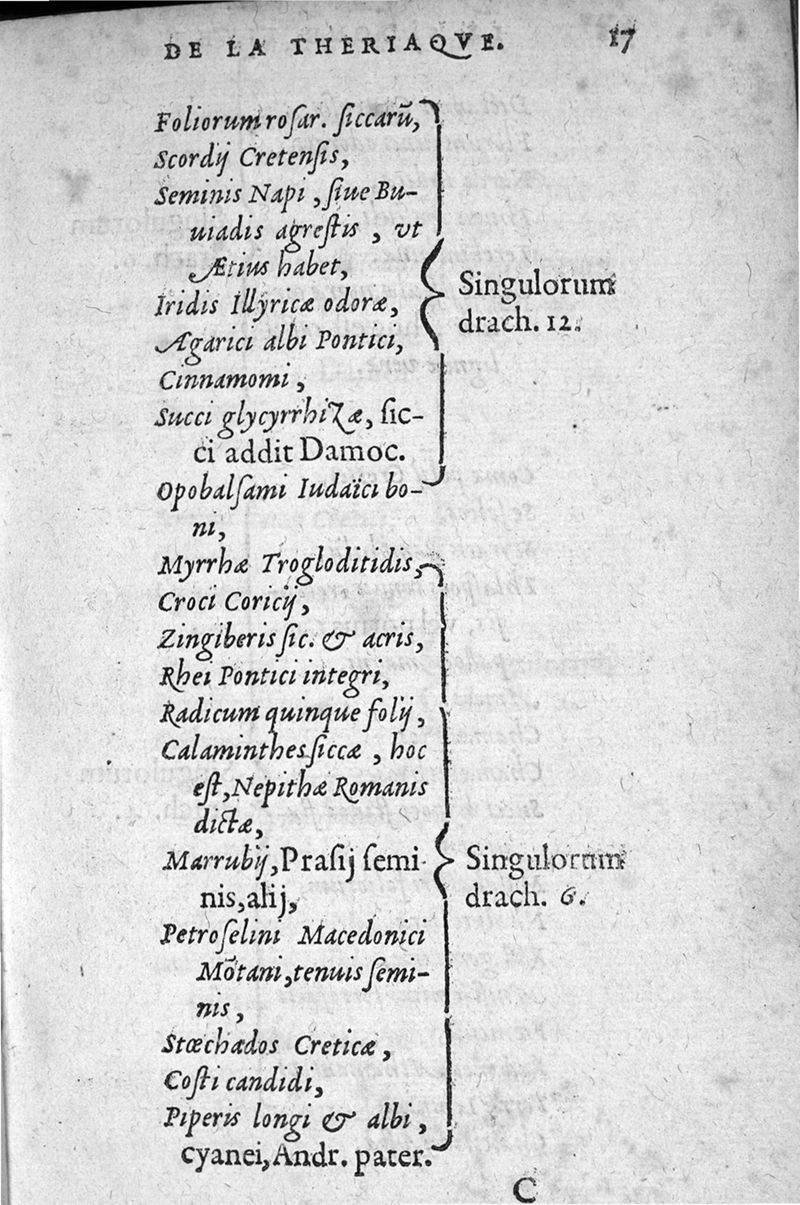 DE LA THERIAQVE. 17
Foliorum roſar. ſiccarū,
Scordij Cretenſis,
Seminis Napi, ſiue Bu-
uiadis agreſtis, vt
Ætius habet,
Iridis Illyricæ odoræ,
Agarici albi Pontici,
Cinnamomi,
Succi glycyrrhizæ, ſic-
ci addit Damoc.
Opobalſami Iudaïci bo-
ni,
Singulorum
drach. 12.
Myrrhæ Trogloditidis,
Croci Coricij,
Zingiberis ſic. & acris,
Rhei Pontici integri,
Radicum quinque folij,
Calaminthes ſiccæ, hoc
eſt, Nepithæ Romanis
dictæ,
Marrubij, Praſij ſemi-
nis, alij,
Petroſelini Macedonici
Mōtani, tenuis ſemi-
nis,
Stœchados Creticæ,
Coſti candidi,
Piperis longi & albi,
cyanei, Andr. pater.
Singulorum
drach. 6.
C